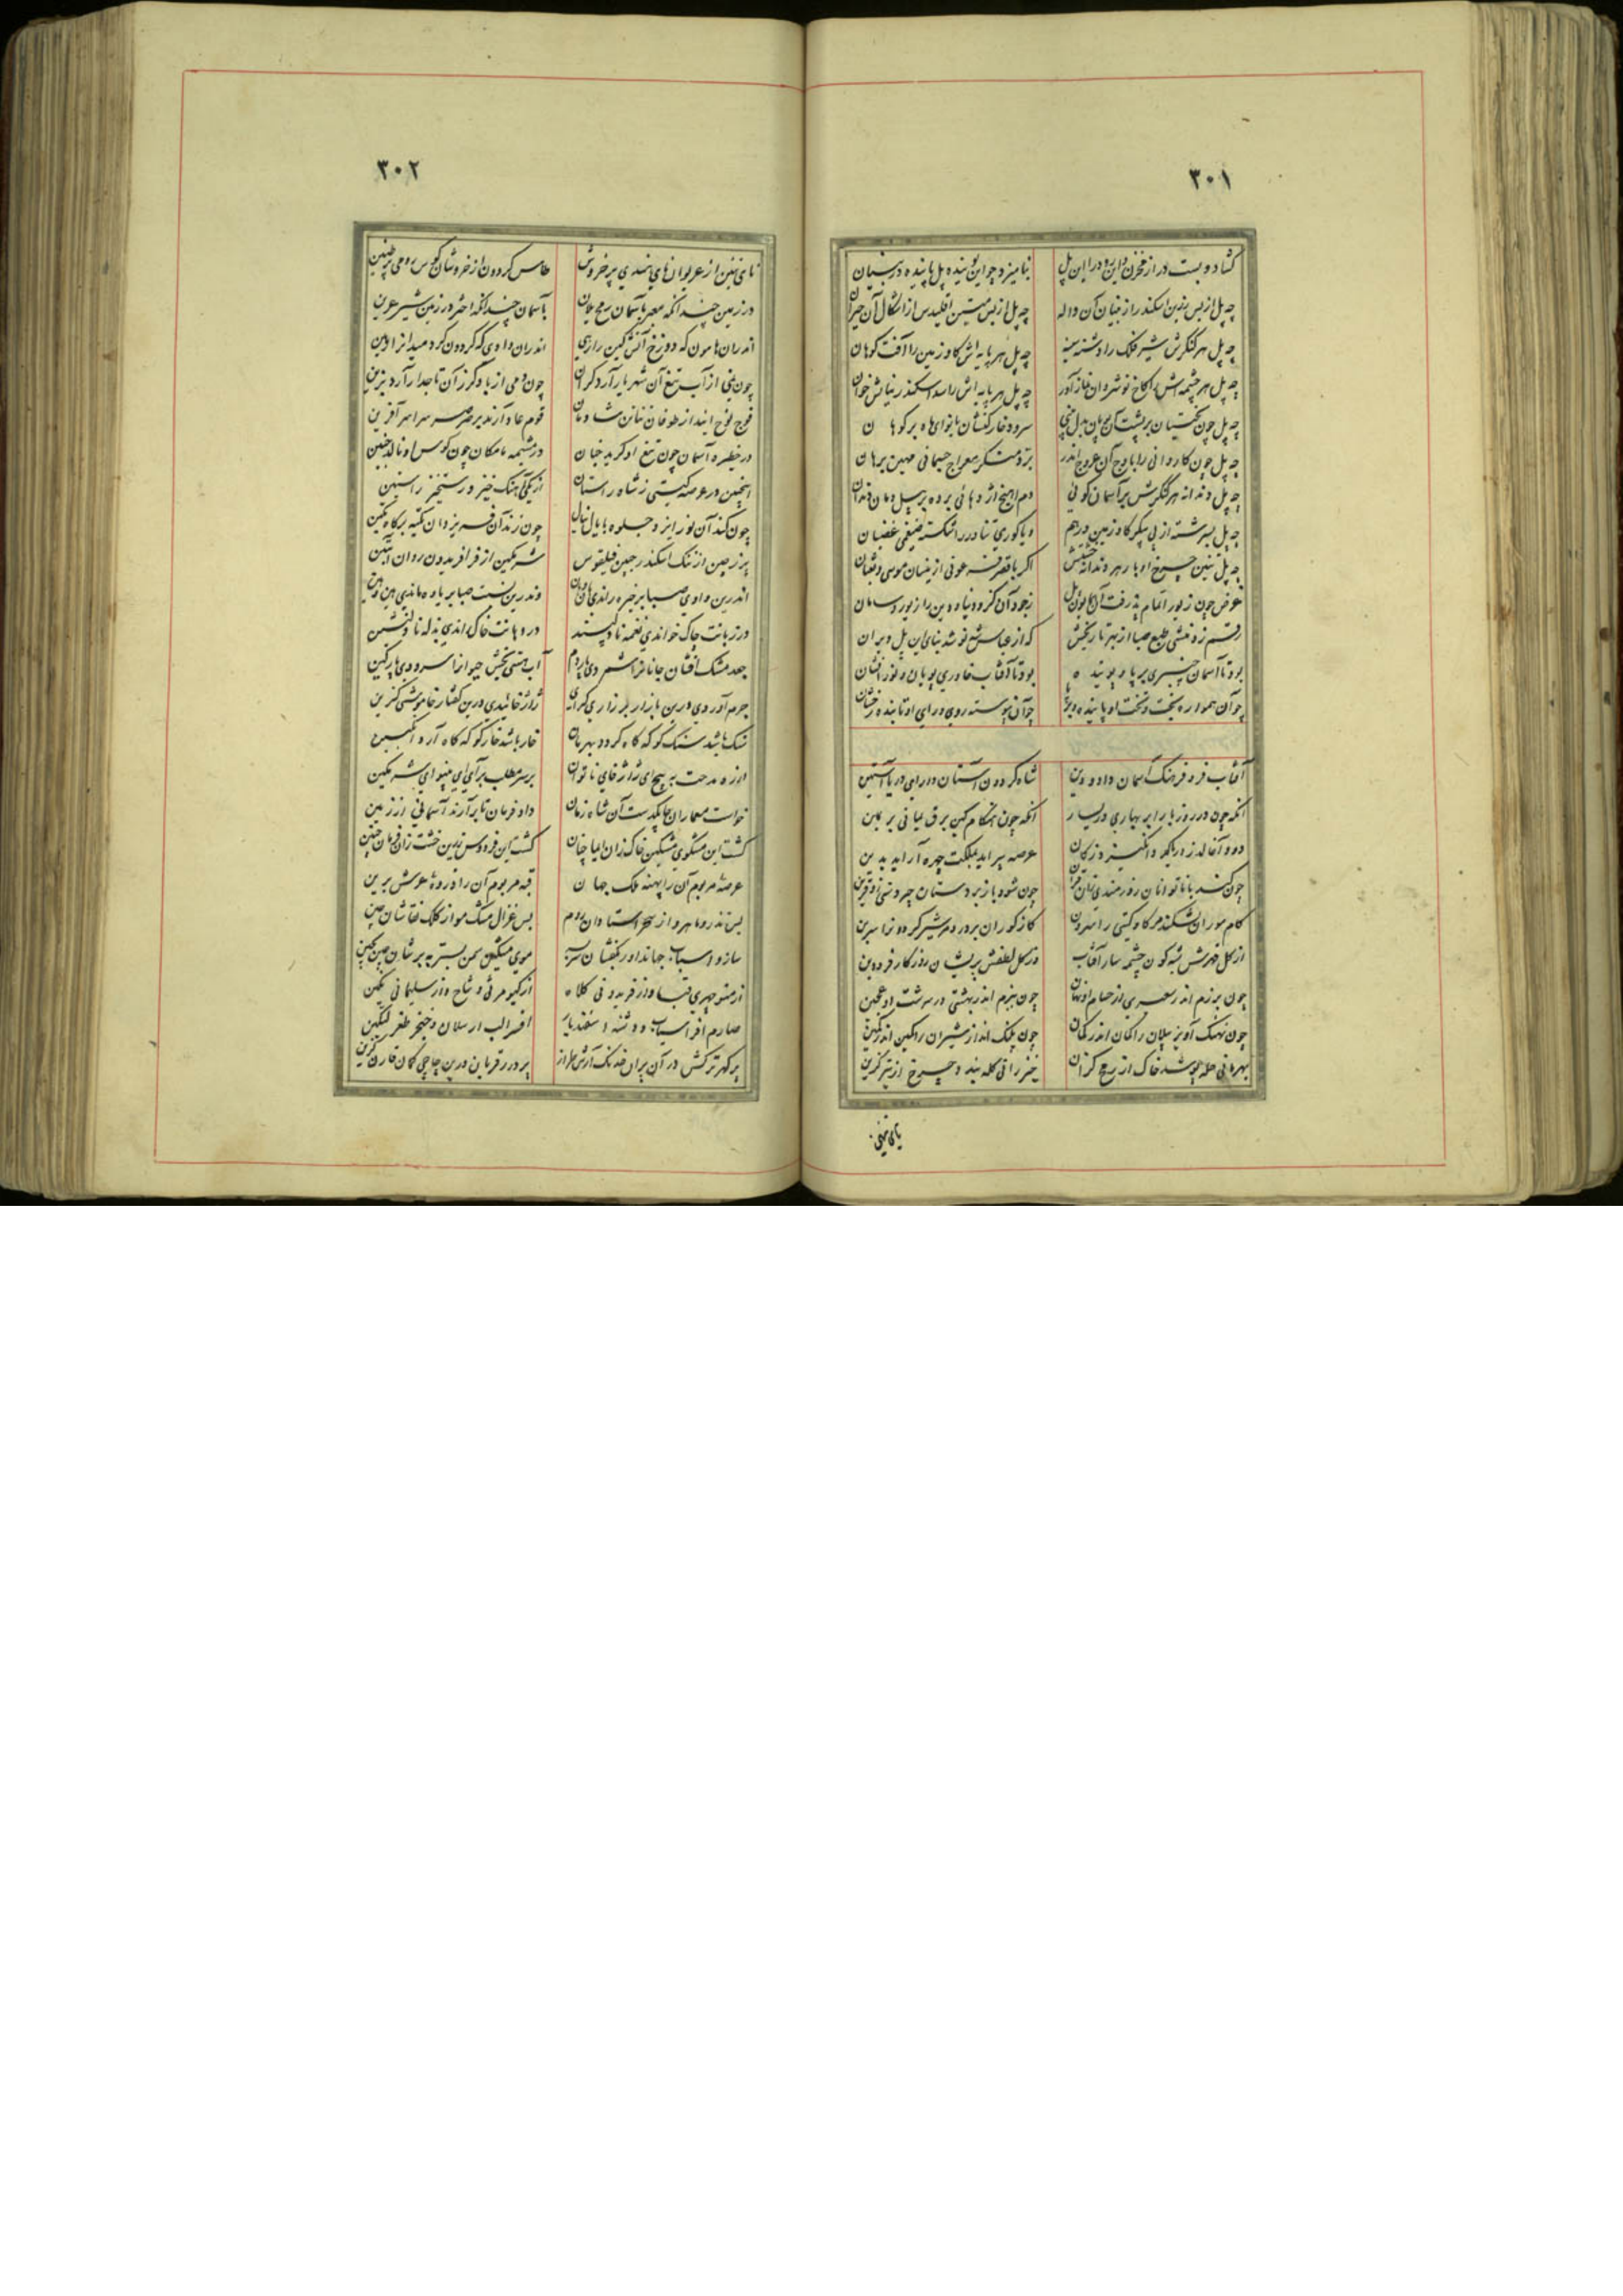 ٣٠١
کشاد و بست در از مخزن و این رود را این پل بنامیزد چو این پوینده پل پاینده در بنیان
چه پل از بس رزین اسکندر از بنیان آن واله چه پل از بس متین اقلیدس از اشکال آن حیران
چه پل هر کنکرش شیر فلک را دشنه سینه چه پل هر پایه اش کاو زمین را آفت کوهان
چه پل هر چشمه اش کاخ نوشروان آور چه پل هر پایه اش را سد اسکندر بنایش خوان
چه پل چون بختیان بر پشت سرود خارکنشان با نوای ماه بر کوهان
چه پل چون کاروانی را باوج آن عروج اندر بر معراج جسمانی مهین برهان
چه پل دندانه هر کنکرش بر آسمان کوئی دم آهنج اژدهائی برده بر پیل دمان دندان
چه پل سرشته از پی پیکر کاو زمین درهم و یا کوری تناور را شکسته ضیغمی غضبان
چه پل تنین چرخ اوبار هر دندانه اکر با قصر فرعونی از بنیان موسی و ثعبان
عوض چون زیور اتمام پذرفت آن همایون پل ز جود آن کزو دنیا و دین را زیور و سامان
رقم زد منشی طبع صبا از بهر تاریخش که از عباس شه نو شد بنای این پل ویران
بود تا آسمان چنبری بر پا و پوینده بود تا آفتاب خاوری پویان و نور افشان
چو آن همواره بخت و تخت او پاینده و برپا چو آن پیوسته روی و رای او تابنده و رخشان
آفتاب فره و فرهنک آسمان داد و دین شاه کردون آستان دارای دریا آستین
آنکه چون در روز بار ابر بهاری در یسار آنکه چون هنکام کین برق یمانی بر یمین
دود آنجا لدزد دریا عرصه پیراید بملکت چهره آراید بدین
چون کند با ناتوانان روزمندی چون شود با زبردستان چیره
کام موران شکند مر کاو کیتی را سرون کاز کوران بردرد مر شیر کردون را سرین
از کل قهرش شبه کون چشمه سار آفتاب وز کل لطفش پریشان روزکار فرودین
چون برزم اندر سعیری از حسام او نهان چون ببزم اندر بهشتی در سرشت او عجین
چون نهنک آویز پیلان را کمان اندر کمان چون پلنک انداز شیران را کمین اندر کمین
بهرمانی حله پوشد خاک از رمح کران خیزرانی کله بندد چرخ از تیر کزین
یای تنین
٣٠٢
نای تنین از غریوان نای هندی پر خروش طاس کردون از خروشان کوس رومی پر طنین
در زمین چندانکه مغبر بآسمان رمح یلان بآسمان چندانکه اختر در زمین شیر عرین
اندران هامون که دوزخ آتش کین را رهی اندران وادی که کردون کرد میدان را رهین
چون نمی از آب تیغ آن شهریار آرد کران چون دمی از باد کرز آن تاجدار آرد بزین
فوج نوح ایند از طوفان ننانن شادمان قوم عاد آرند بر صرصر سراسر آفرین
در خطیره آسمان چون تیغ او کرید جنان در مشیمه مامکان چون کوس او نالد جنین
اینچنین در عرصه کیتی ز شاه راستان از یکی آهنک خیزد رستخیز راستین
چون کند آن نور ایزد جلوه با یال چون زند آن فر یزدان تکیه بر کاه تکین
پر ز چین از ننک اسکندر جبین فیلقوس شرمکین از فر افریدون روان آبتین
اندرین وادی صبا بر خیره راندی وندرین نسبت صبا بر یاوه ماندی
در زبانت چاک خواندی نغمه نادلپسند در دهانت خاک راندی بذله نادلنشین
جعد مشک افشان جانان را شمردی آب هستی بخش حیوان را سرودی پارکین
جرم آوردی درین بازار بازاری کران ژاژ خائیدی درین کفتار خاموشی کزین
سنک باشد سنک کو که کاه کردد بهرمان خار باشد خار کو که کاه آرد انکبین
از ره مدحت به پیچ ای ژاژخای ناتوان بر سر مطلب برآی ای بینوای شرمکین
خواست معماران چابکدست آن شاه زمان داد فرمان تا برآرند آسمانی از زمین
کشت این مشکوی مشکین خاک زان ایما چنان کشت این فردوس زرین خشت زان فرمان چنین
عرصه مر بوم آن را پهنه ملک جهان قبه مر بوم آن را ذروه عرش برین
بس تذرو ماهرو از سحر استادان روم بس غزال مشک مو از کلک نقاشان چین
ساز و اسباب جهانداور بکفشان موی مشکین سمن بستر
از منوچهری قبا و از فریدونی کلاه از کیومرثی و شاح و از سلیمانی نکین
صارم افراسیاب و دشنه اسفندیار افسر الب ارسلان و خنجر طغرلتکین
پر کهر ترکش در آن پران خدنک آرش طراز پر درر قربان درین چاچی کمان قارن کزین